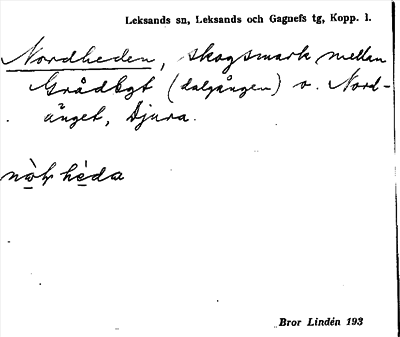 Leksands sn, Leksands och Gagnefs tg, Kopp. l.
Nordheden, skogsmark mellan
Grådbyt (dalgången) o. Nord-
änget, Djura.
Bror Lindén 193